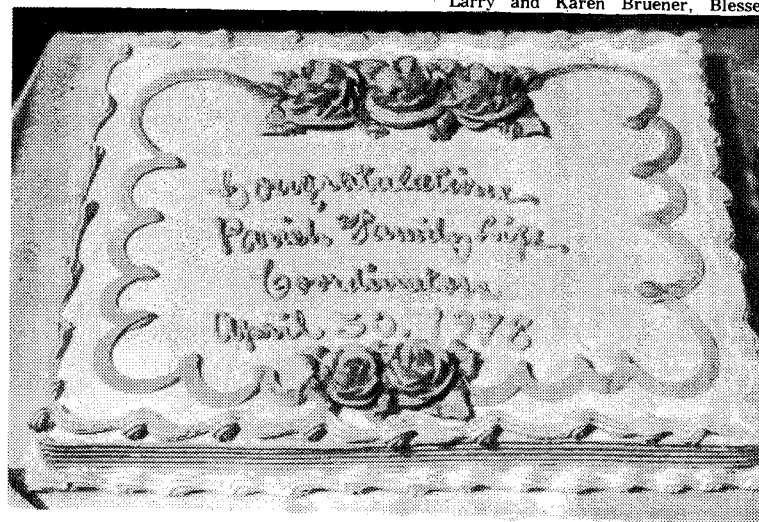 Larry and Karen Bruener, Blesse
Congratulations
Parish Family Life
Coordinators
April 30, 1978